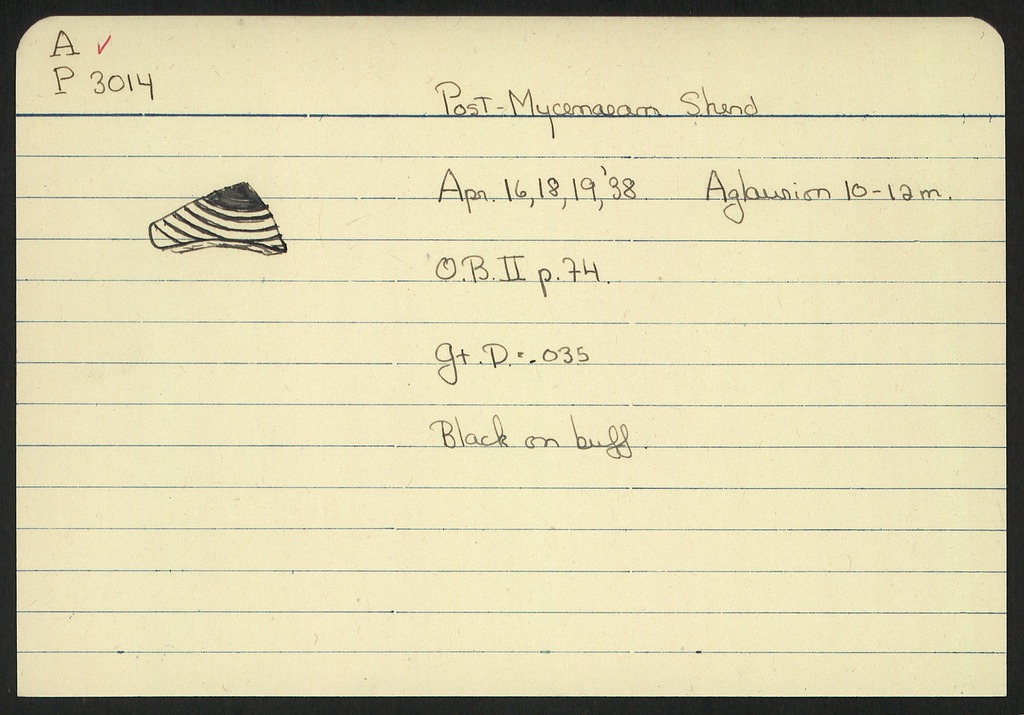 A ✓
P 3014
Post-Mycenaean Sherd
Apr. 16, 18, 19, '38. Aglaurion 10-12 m.
O.B. II p. 74.
Gt. D. = .035
Black on buff.